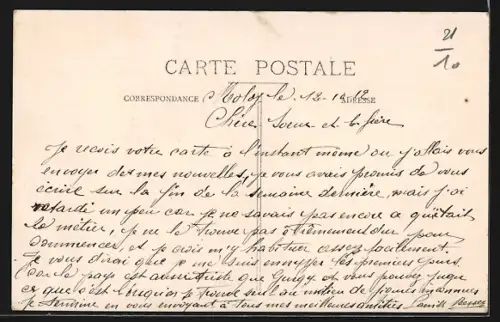 21
/10
CARTE POSTALE
CORRESPONDANCE
ADRESSE
le 13-10-12
Chère Soeur et b. frère
Je reçois votre carte à l'instant même ou j'allais vous
envoyer des mes nouvelles, je vous avais promis de vous
écrire sur la fin de la semaine dernière, mais j'ai
retardé un peu car je ne savais pas encore a quétait
le métier, je ne le trouve pas trôp pour
commencer, et je crois m'y habituer assez facilement.
Je vous dirai que je me suis ennuyer les premiers jours
car le pays est aussi triste que et vous pouvez juger
ce que c'est l'orsqu'on se trouve seul au milieu de jeunes inconnus
Je termine en vous envoyant à tous mes meilleures amitiés Camille